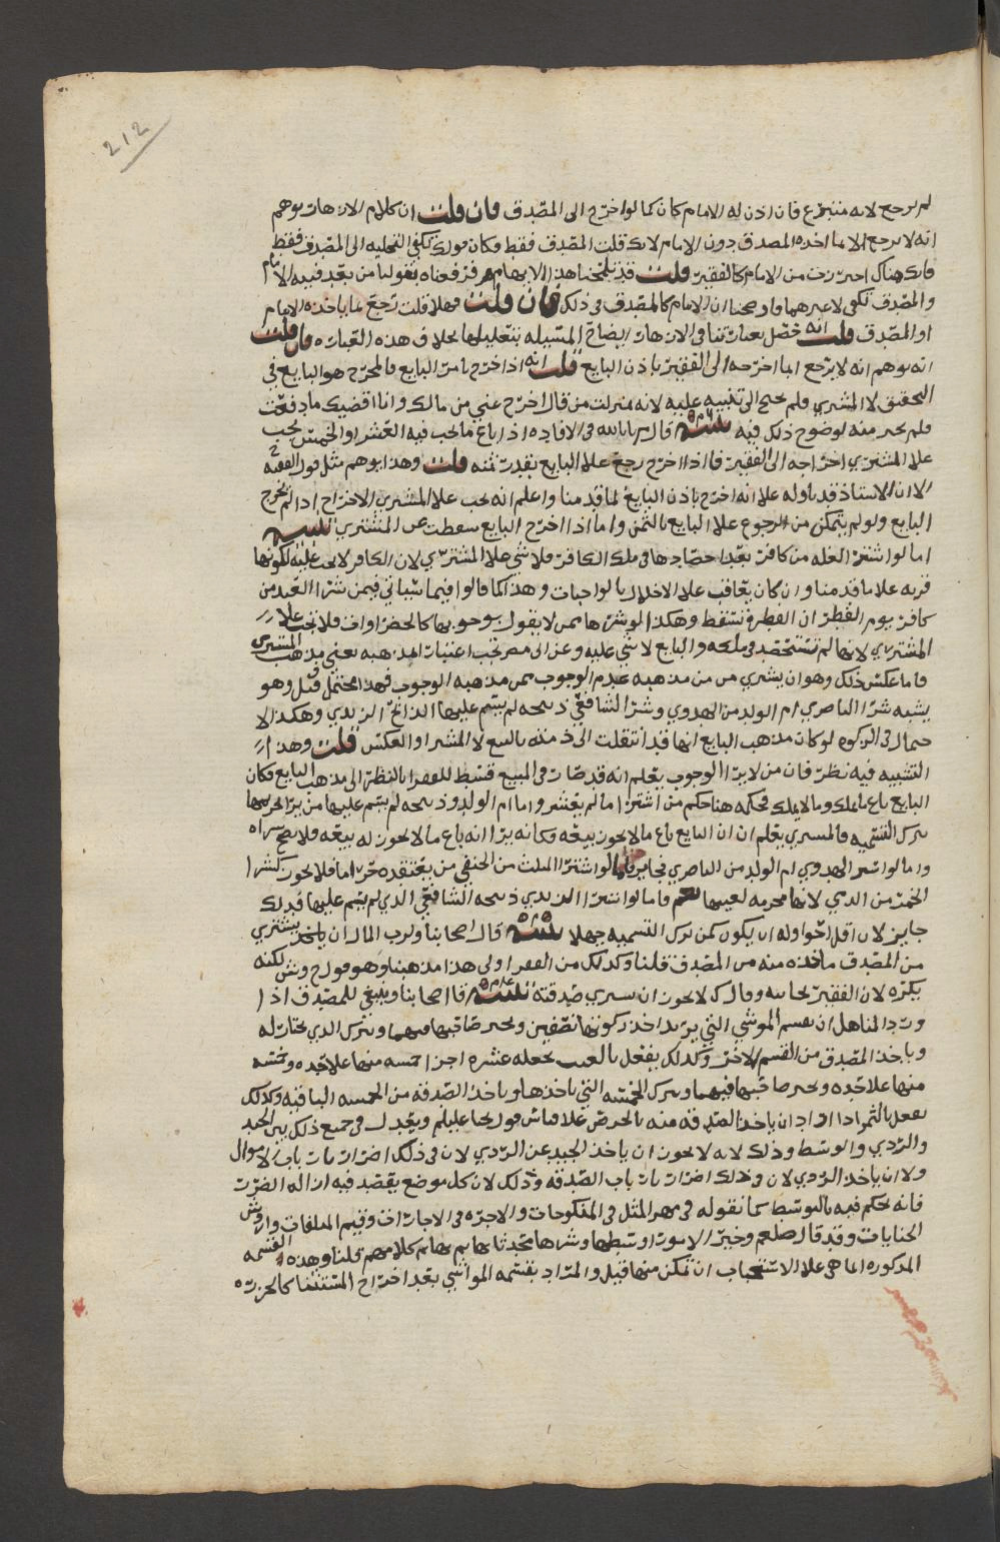 212
لم يرجع لانه متبرع فان اذن له الامام كان كما لو اخرج الى المصدق فان قلت ان كلام الازهار يوهم
انه لا يرجع الا ما اخذه المصدق دون الامام لانك قلت المصدق فقط وكان قولك تكفي التخليه الى المصدق فقط
فانك هناك احترزت من الامام كالفقير قلت قد هذا الابهام فرفعناه بقولنا من بعد فنيه الامام
والمصدق تكفي لا غيرهما واوضحنا ان الامام كالمصدق في ذلك فان قلت فهلا قلت رجع بما ياخذه الامام
او المصدق قلت انه حصل بعبارتنا في الازهار ايضاح المسيله بتعليلها بخلاف هذه العباره فان قلت
انه يوهم انه لا يرجع بما اخرجه الى الفقير باذن البايع قلت انه اذا اخرج بامر البايع فالمخرج هو البايع في
التحقيق لا المشتري فلم يحتج الى تنبيه عليه لانه بمنزلت من قال اخرج عني من مالك وانا اقضيك ما دفعت
فلم يحترز منه لوضوح ذلك فيه تنبيه قال في الافاده اذا باع ما يجب فيه العشر او الخمس يجب
على المشتري اخراجه الى الفقير فاذا اخرج رجع على البايع بقدر ثمنه قلت وهذا يوهم مثل قول الفقيه
الا ان الاستاذ قد تاوله على انه اخرج باذن البايع لما قدمنا واعلم انه يجب على المشتري الاخراج اذا لم يخرج
البايع ولو لم يتمكن من الرجوع على البايع بالثمن واما اذا اخرج البايع سقطت عن المشتري تنبيه
اما لو اشترا الغله من كافر بعد احصادها في ملك الكافر فلا شي على المشتري لان الكافر لا يجب عليه لكونها
قربه على ما قدمنا وان كان يعاقب على الاخلال بالواجبات وهذا كما قالوا فيما سياتي فيمن شرا العبد من
كافر يوم الفطر ان الفطره تسقط وهكذا لو شراها ممن لا يقول بوجوبها كالخضراوات فلا تجب على
المشتري لانها لم تستحصد في ملكه والبايع لا شي عليه وعن الى مضر تجب اعتبارا لمذهبه يعني مذهب المشتري
فاما عكس ذلك وهو ان يشتري من من مذهبه عدم الوجوب ممن مذهبه الوجوب فهذا محتمل قيل وهو
يشبه شرا الناصري ام الولد من الهدوي وشرا الشافعي ذبيحه لم يسم عليها الذابح الزيدي وهكذا الا
حتمال في الزكوه لو كان مذهب البايع انها قد انتقلت الى ذمته بالبيع لا المشترا والعكس قلت وهذا
التشبيه فيه نظر فان من لا يرا الوجوب يعلم انه قد صار في المبيع قسط للفقرا بالنظر الى مذهب البايع فكان
البايع باع ما يملك وما لا يملك فحكمه هنا حكم من اشترا ما لم يعشر واما ام الولد وذبيحه لم يسم عليها من يرا تحريمها
بترك التسميه فالمشتري يعلم ان ان البايع باع ما لا يجوز بيعه وكانه يرا انه باع ما لا يجوز له بيعه فلا يصح شراه
واما لو اشترا الهدوي ام الولد من الناصري فجايز لو اشترا المثلث من الحنفي من يعتقده خمرا ما فلا يجوز كشرا
الخمر من الذمي لانها محرمه لعينها نعم فاما لو اشترا الزيدي ذبيحه الشافعي الذي لم يسم عليها فذلك
جايز لان اقل احواله ان يكون كمن ترك التسميه جهلا تنبيه قال اصحابنا ولرب المال ان يشتري
من المصدق ما اخذه منه من المصدق قلنا وكذلك من الفقرا ولى هذا مذهبنا وهو قول ح وش لكنه
يكره لان الفقير يحابيه وقال ك لا يجوز ان يشتري صدقته تنبيه قال اصحابنا وينبغي للمصدق اذا
ورد المناهل ان يقسم المواشي التي يريد اخذ زكوتها نصفين ويخير صاحبها فيهما ويترك الذي يختار له
وياخذ المصدق من القسم الاخر وكذلك يفعل بالعنب يجعله عشره اجزا خمسه منها على حده وخمسه
منها على حده ويخير صاحبها فيهما ويترك الخمسه التي ياخذها وياخذ الصدقه من الخمسه الباقيه وكذلك
يفعل بالثمر اذا اراد ان ياخذ الصدقه منه بالخرص على قياس قول يحيا عليلم ويعدل في جميع ذلك بين الجيد
والردي والوسط وذلك لانه لا يجوز ان ياخذ الجيد عن الردي لان في ذلك اضرار بارباب الاموال
ولا ان ياخذ الردي لان في ذلك اضرار بارباب الصدقه وذلك لان كل موضع يقصد فيه ازاله الضرر
فانه يحكم فيه بالتوسط كما نقوله في مهر المثل في المنكوحات والاجره في الاجارات وقيم المتلفات واروش
الجنايات وقد قال صلعم وخير الامور اوسطها
المذكوره انما هي على الاستحباب ان تمكن منها قيل والمراد بقسمه المواشي بعد اخراج المستثنا كالحزره